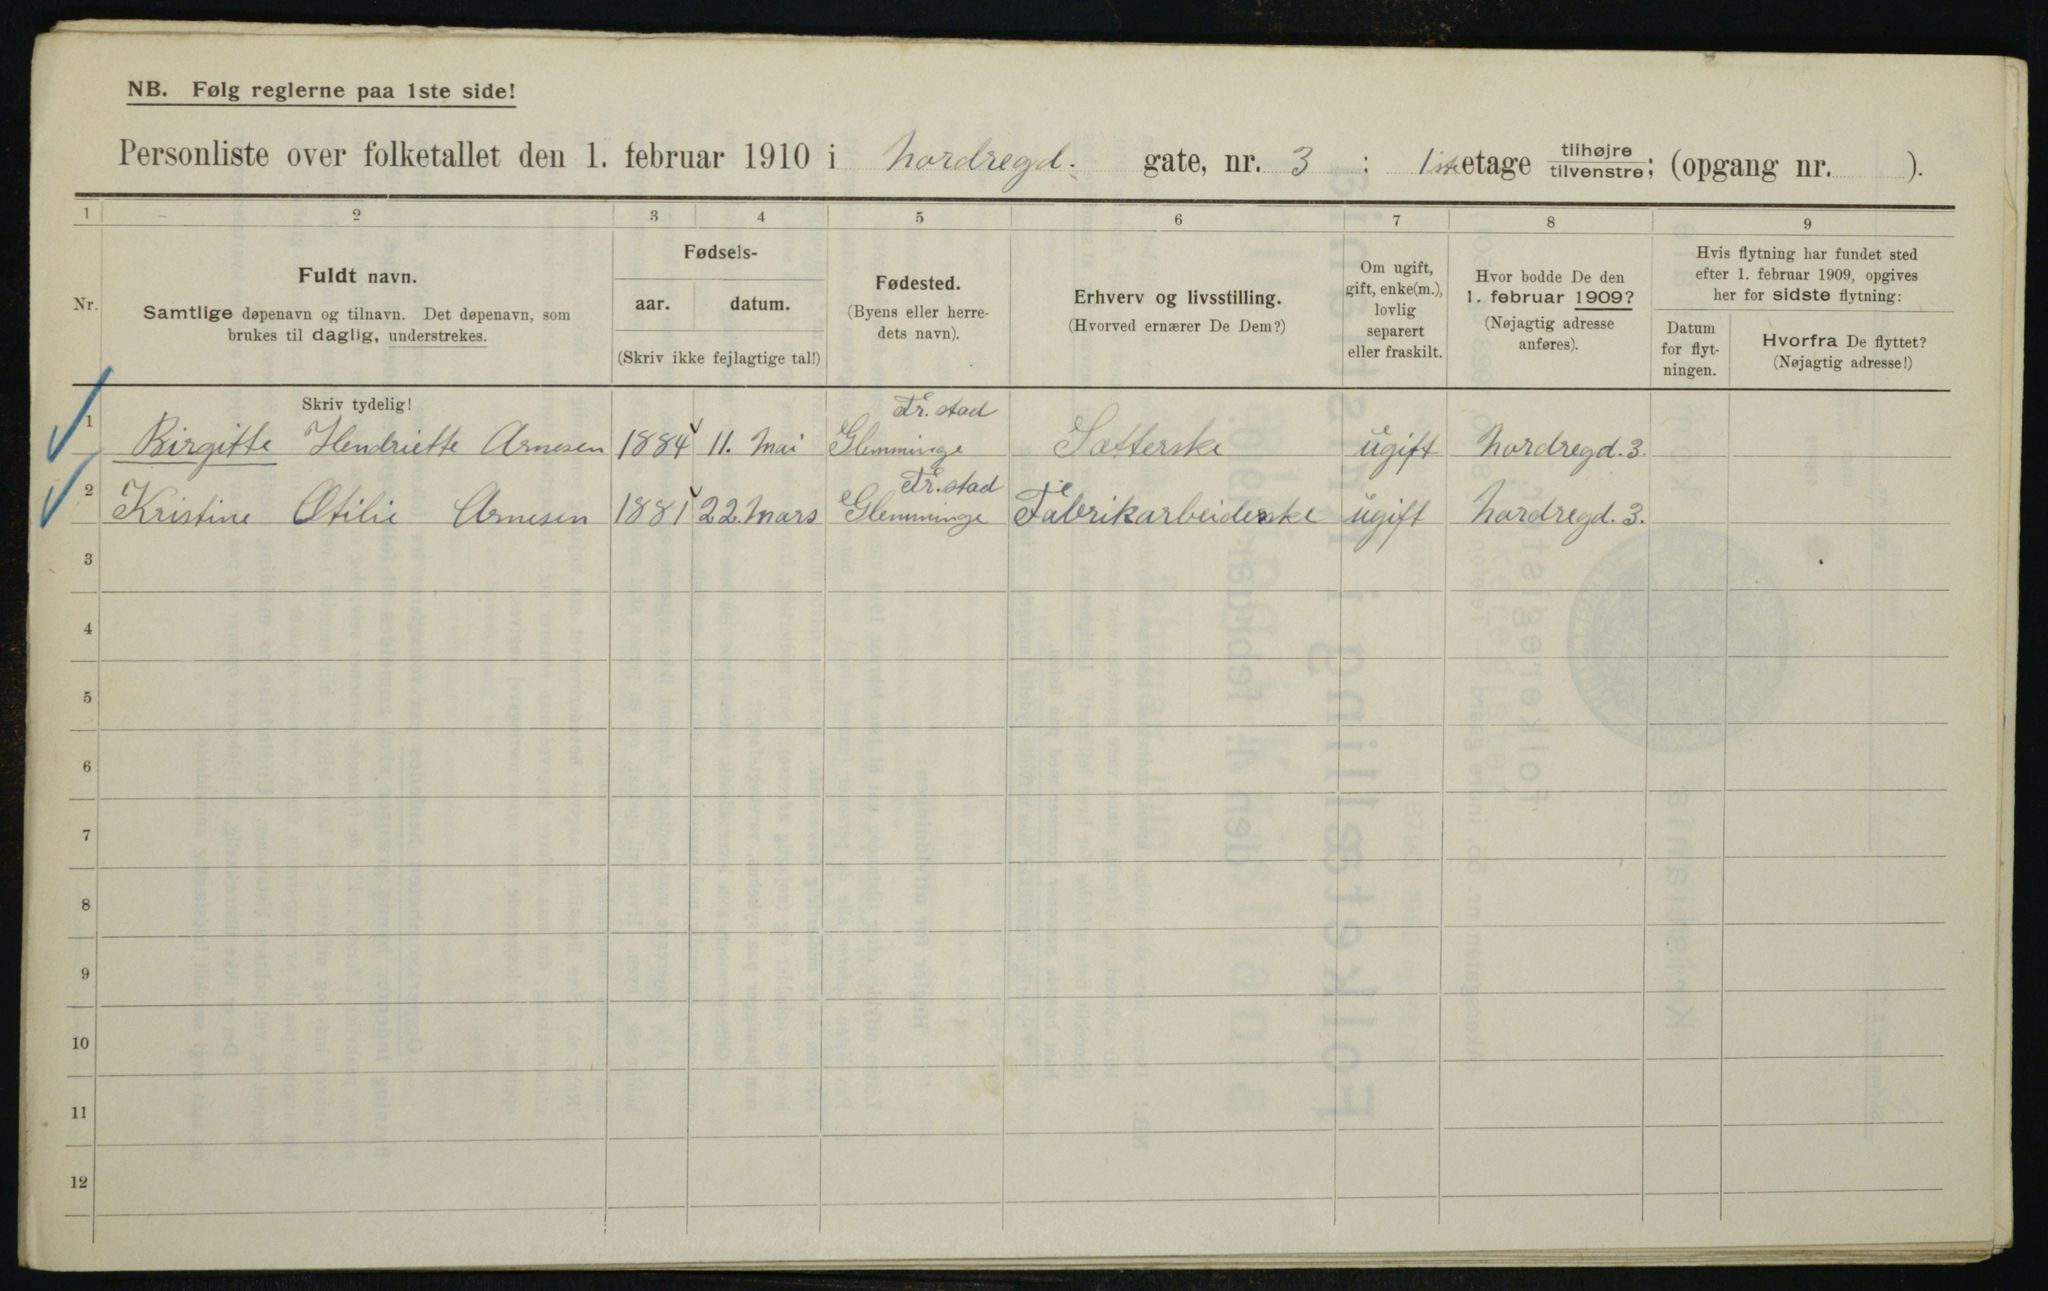 NB. Følg reglerne paa 1ste side!
Personliste over folketallet den 1. februar 1910 i Nordregd. gate, nr. 3 : 1ste etage tilhøjre/tilvenstre; (opgang nr. ).
1 2 3 4 5 6 7 8 9
Nr.
Fuldt navn.
Samtlige døpenavn og tilnavn. Det døpenavn, som
brukes til daglig, understrekes.
Fødsels-
aar. datum.
(Skriv ikke fejlagtige tal!)
Fødested.
(Byens eller herre-
dets navn).
Erhverv og livsstilling.
(Hvorved ernærer De Dem?)
Om ugift,
gift, enke(m.),
lovlig
separert
eller fraskilt.
Hvor bodde De den
1. februar 1909?
(Nøjagtig adresse
anføres).
Hvis flytning har fundet sted
efter 1. februar 1909, opgives
her for sidste flytning:
Datum
for flyt-
ningen.
Hvorfra De flyttet?
(Nøjagtig adresse!)
Skriv tydelig!
Fr. stad
1 Birgitte Hendriette Arnesen 1884 11. Mai Glemminge Sætterske ugift Nordregd. 3.
Fr. stad
2 Kristine Otilie Arnesen 1881 22. Mars Glemminge Fabrikarbeiderske ugift Nordregd. 3.
3
4
5
6
7
8
9
10
11
12